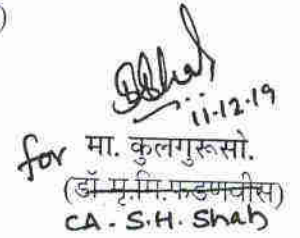 )
BBhah
11-12-19
for मा. कुलगुरूसो.
(डॉ मृ.मि.फडणवीस)
CA. S.H. Shah